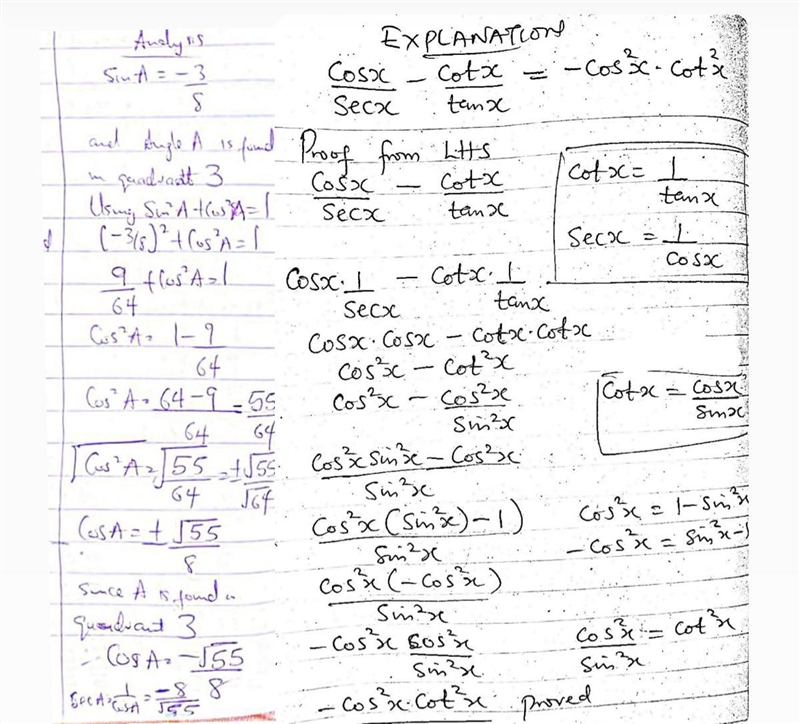 Analysis
SinA = -3/8
and Angle A is found
in quadrant 3
Using Sin²A + Cos²A = 1
(-3/8)² + Cos²A = 1
9/64 + Cos²A = 1
Cos²A = 1 - 9/64
Cos²A = 64-9/64 = 55/64
√Cos²A = √55/64 = ±√55/√64
CosA = ± √55/8
Since A is found in
quadrant 3
∴ CosA = -√55/8
SecA = 1/CosA = -8/√55
EXPLANATION
Cosx/Secx - Cotx/tanx = -Cos²x · Cot²x
Proof from LHS
Cosx/Secx - Cotx/tanx
Cotx = 1/tanx
Secx = 1/Cosx
Cosx · 1/Secx - Cotx · 1/tanx
Cosx · Cosx - Cotx · Cotx
Cos²x - Cot²x
Cos²x - Cos²x/Sin²x
Cotx = Cosx/Sinx
Cos²x Sin²x - Cos²x/Sin²x
Cos²x (Sin²x) - 1)/Sin²x
Cos²x = 1 - Sin²x
-Cos²x = Sin²x - 1
Cos²x (-Cos²x)/Sin²x
-Cos²x Cos²x/Sin²x
Cos²x/Sin²x = Cot²x
-Cos²x · Cot²x proved